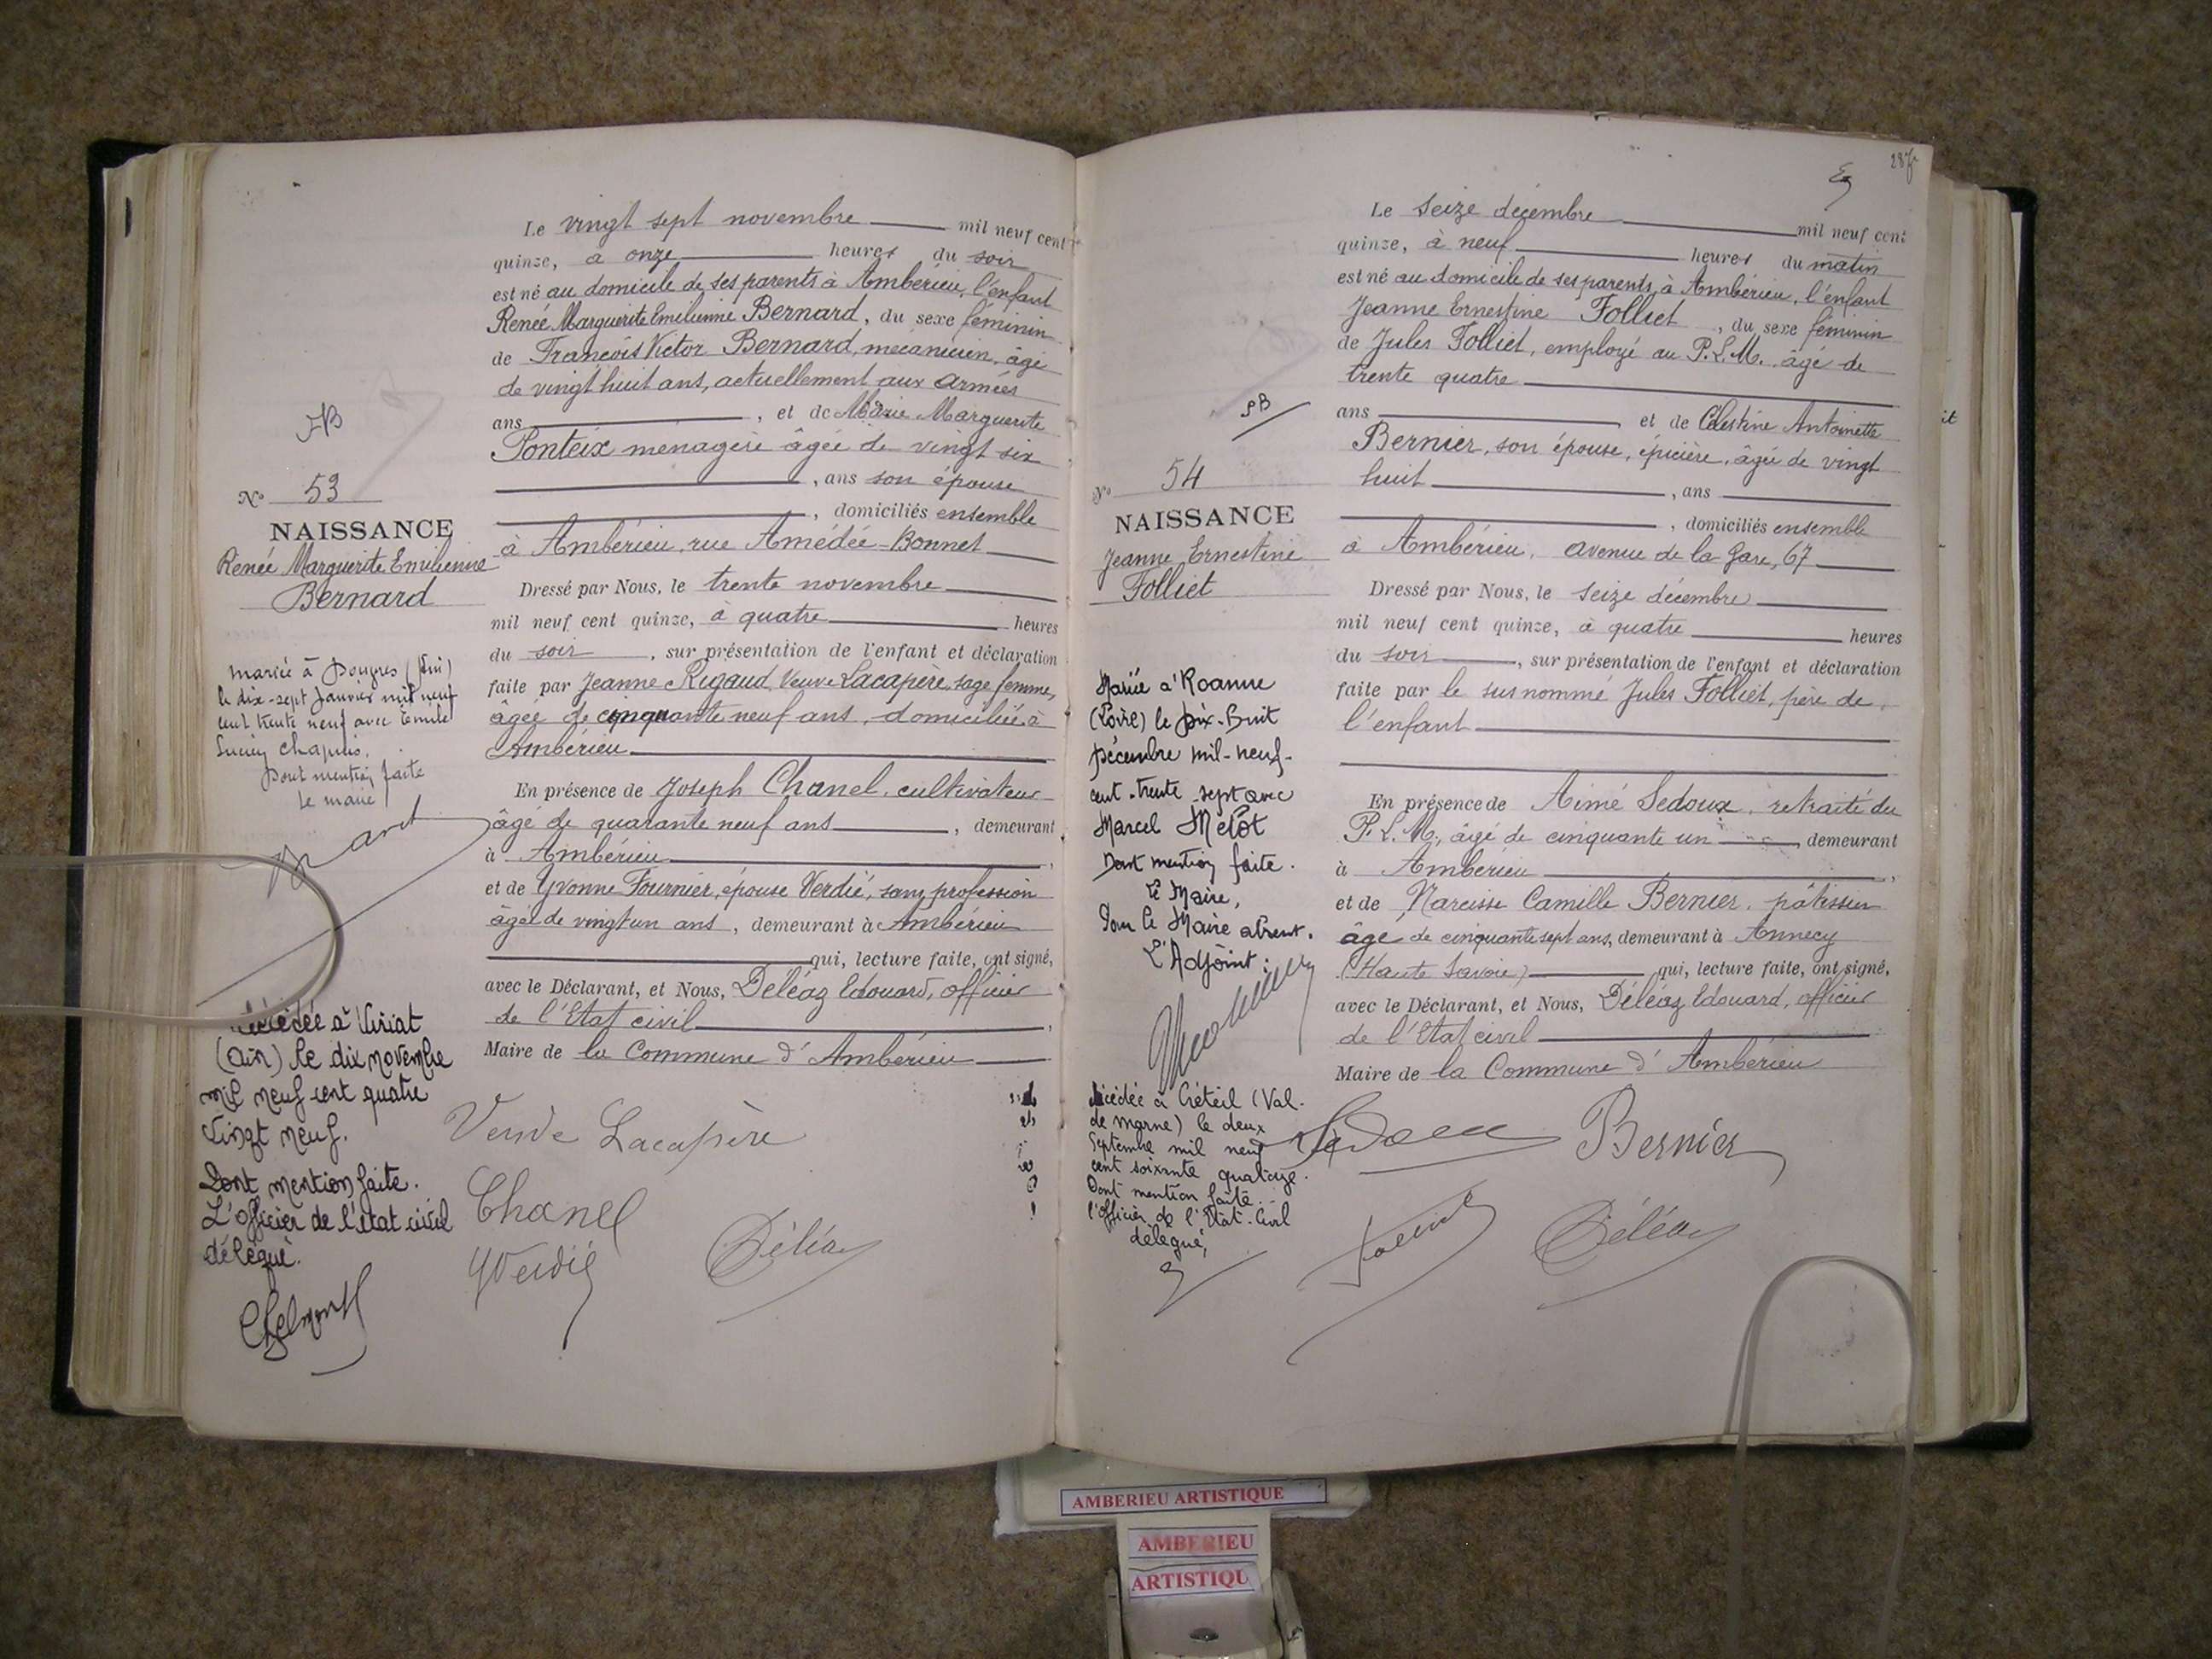 Le vingt sept novembre mil neuf cent
quinze, à onze heures du soir
est né au domicile de ses parents à Ambérieu, l'enfant
Renée Marguerite Emilienne Bernard, du sexe féminin
de François Victor Bernard, mécanicien, âgé
de vingt huit ans, actuellement aux armées
ans, et de Marie Marguerite
Ponteix ménagère âgée de vingt six
, ans son épouse
, domiciliés ensemble
à Ambérieu, rue Amédée-Bonnet
Dressé par Nous, le trente novembre
mil neuf cent quinze, à quatre heures
du soir, sur présentation de l'enfant et déclaration
faite par Jeanne Rigaud, Veuve Lacapère, sage femme,
âgée de cinquante neuf ans, domiciliée à
Ambérieu
En présence de Joseph Chanel, cultivateur
âgé de quarante neuf ans, demeurant
à Ambérieu,
et de Yvonne Fournier, épouse Verdié, sans profession
âgée de vingt un ans, demeurant à Ambérieu
qui, lecture faite, ont signé,
avec le Déclarant, et Nous, Déléaz Edouard, officier
de l'Etat civil,
Maire de la Commune d'Ambérieu
Veuve Lacapère
Chanel
YVerdié
Déléaz
No 53
NAISSANCE
Renée Marguerite Emilienne
Bernard
mariée à (Ain)
le dix-sept Janvier mil neuf
cent trente neuf avec Emile
Lucien Chapuis.
Dont mention faite
Le maire
Décédée à Viriat
(Ain) le dix novembre
mil neuf cent quatre
vingt neuf.
Dont mention faite.
L'officier de l'état civil
délégué.
287
Le seize décembre mil neuf cent
quinze, à neuf heures du matin
est né au domicile de ses parents, à Ambérieu, l'enfant
Jeanne Ernestine Folliet, du sexe féminin
de Jules Folliet, employé au P.L.M. âgé de
trente quatre
ans et de Célestine Antoinette
Bernier, son épouse, épicière, âgée de vingt
huit, ans
, domiciliés ensemble
à Ambérieu, avenue de la Gare, 67
Dressé par Nous, le seize décembre
mil neuf cent quinze, à quatre heures
du soir, sur présentation de l'enfant et déclaration
faite par le susnommé Jules Folliet, père de
l'enfant
En présence de Aimé Sedoux, retraité du
P.L.M., âgé de cinquante un demeurant
à Ambérieu,
et de Narcisse Camille Bernier, pâtissier
âgé de cinquante sept ans, demeurant à Annecy
(Haute Savoie) qui, lecture faite, ont signé,
avec le Déclarant, et Nous, Déléaz Edouard, officier
de l'Etat civil
Maire de la Commune d'Ambérieu
Bernier
Déléaz
No 54
NAISSANCE
Jeanne Ernestine
Folliet
Mariée à Roanne
(Loire) le Dix-Huit
Décembre mil-neuf-
cent-trente-sept avec
Marcel Melot
Dont mention faite.
Le Maire,
Pour le Maire absent.
L'Adjoint:
Décédée à Créteil (Val-
de marne) le deux
Septembre mil neuf
cent soixante quatorze.
Dont mention faite.
l'Officier de l'Etat-Civil
délégué,
AMBERIEU ARTISTIQUE
AMBERIEU
ARTISTIQU